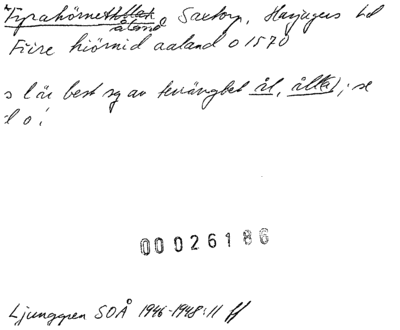 Fyrahörne åland Saxtorp, Harjagers hd
Fiire hiörnid aaland o 1570
s l är best sg av terrängbet ål, ålla; se
l o;
00026186
Ljunggren SOÅ 1946-1948:11 ff